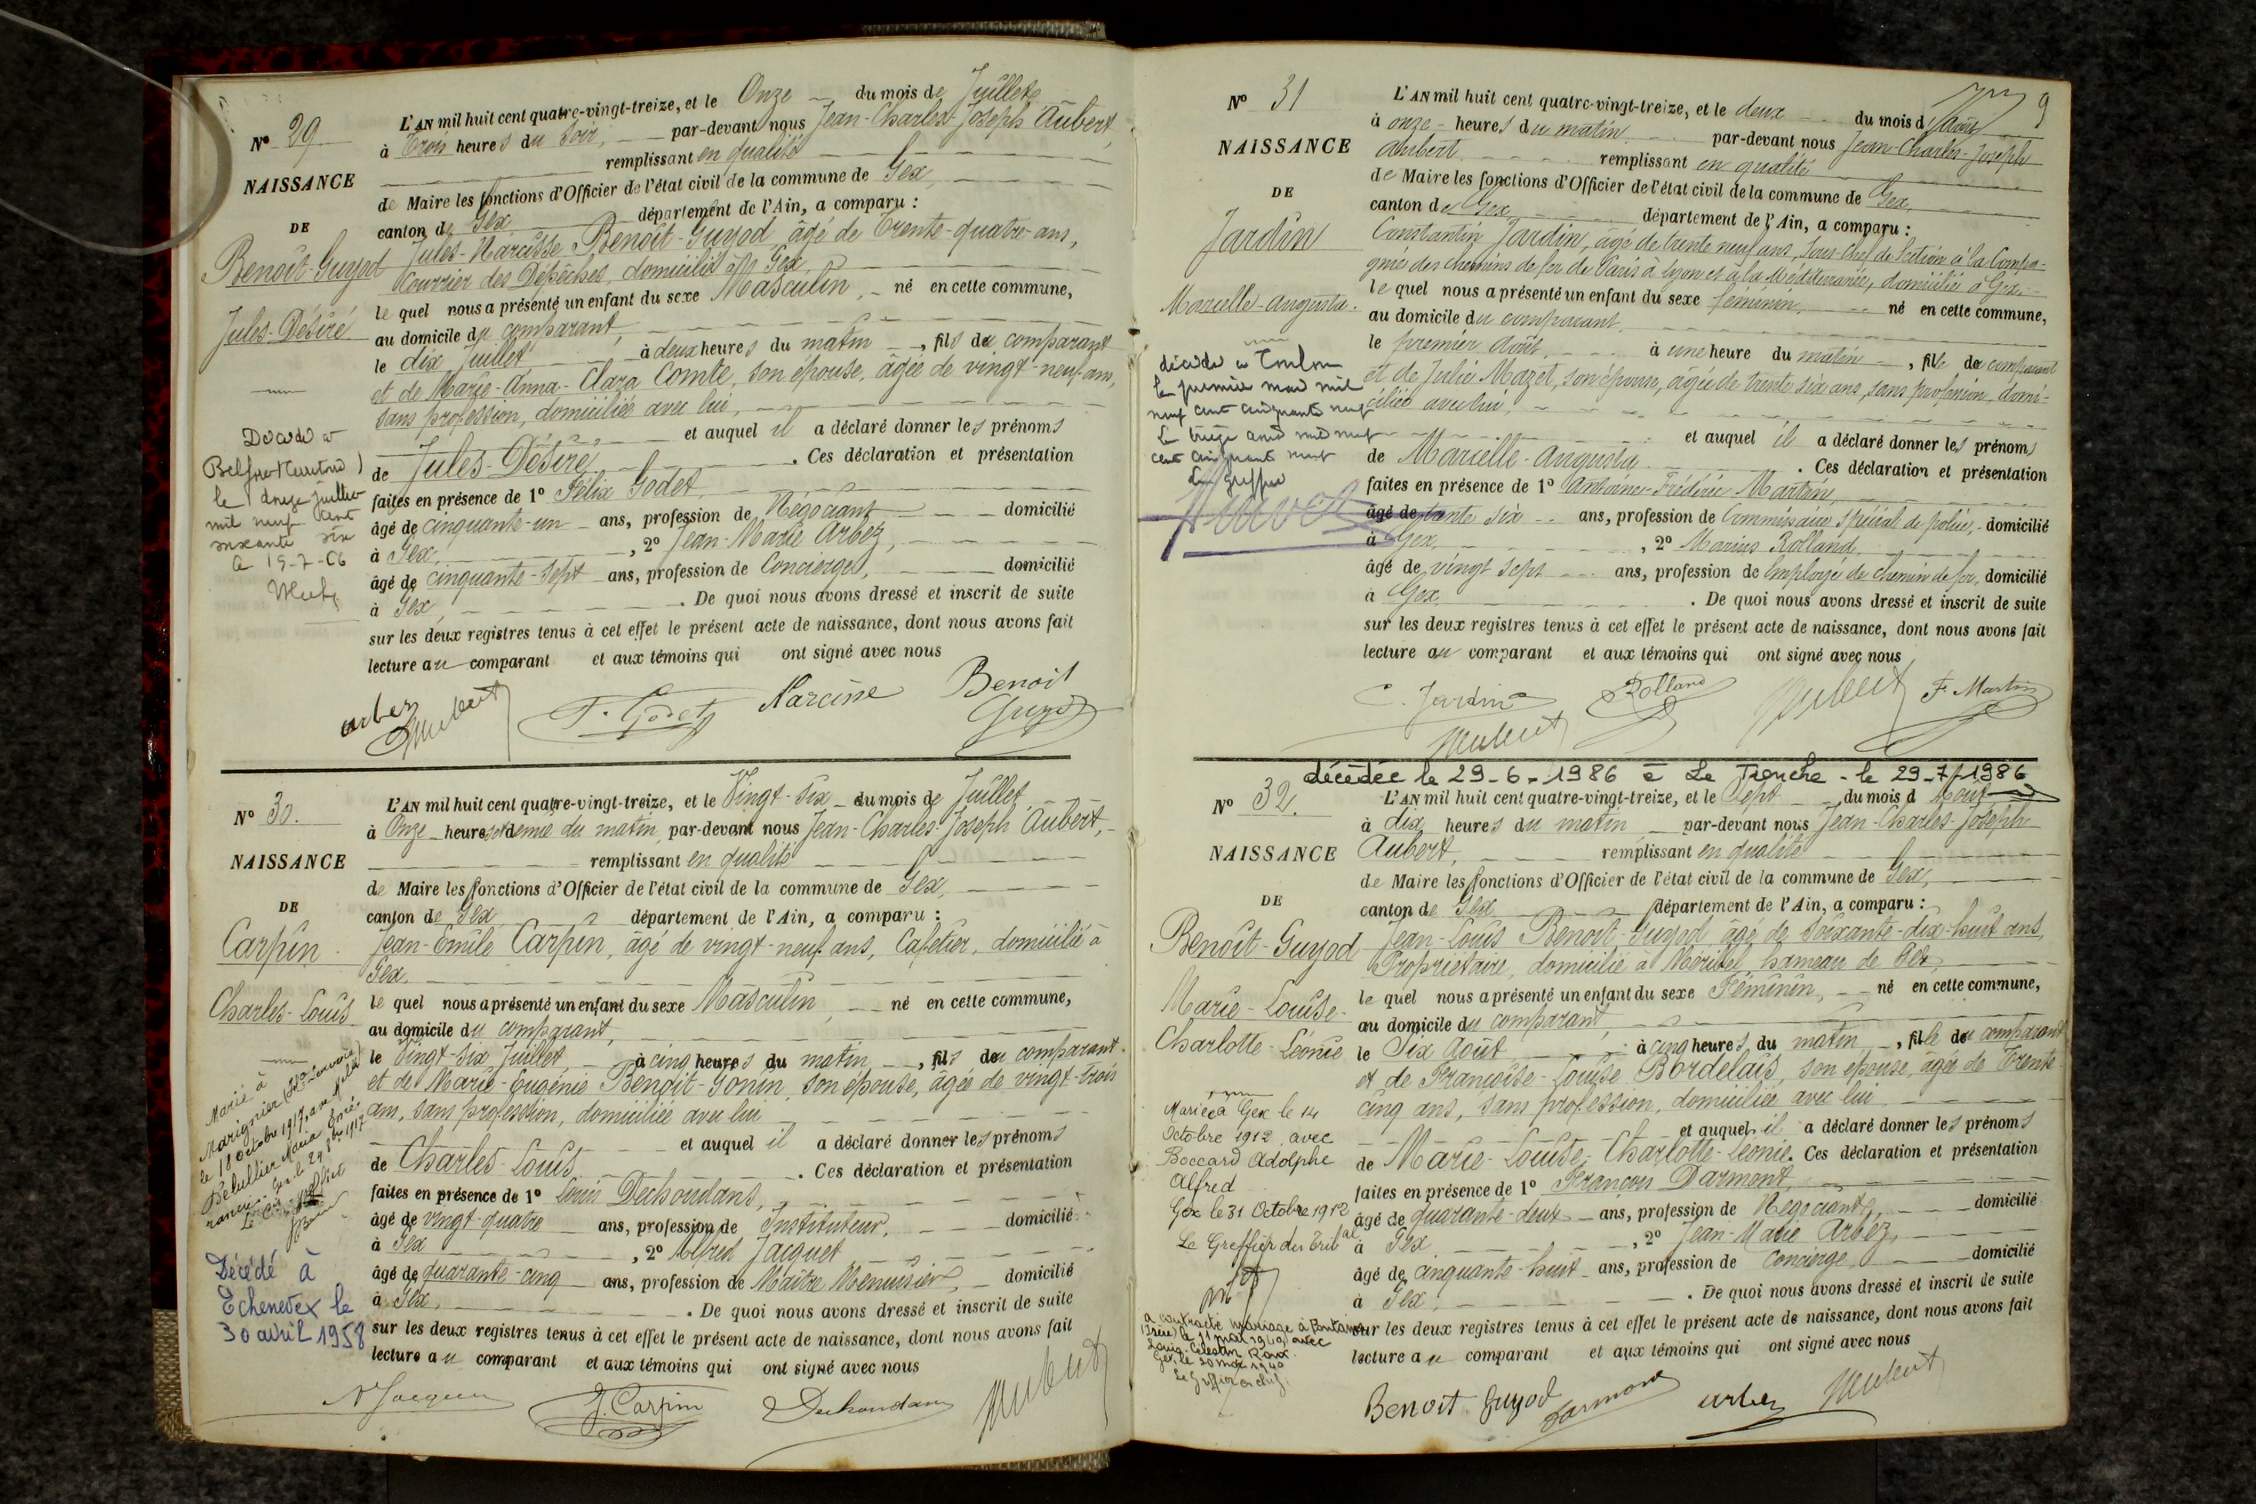 N° 29
NAISSANCE
DE
Benoît-Guyod
Jules-Désiré
Décédé à
Belfort
le douze juillet
mil neuf cent
soixante six
L'AN mil huit cent quatre-vingt-treize, et le Onze du mois de Juillet
à Trois heures du Soir, par-devant nous Jean-Charles-Joseph Aubert,
remplissant en qualité
de Maire les fonctions d'Officier de l'état civil de la commune de Gex,
canton de Gex département de l'Ain, a comparu :
Jules-Narcisse Benoît-Guyod âgé de Trente-quatre ans,
Courrier des Dépêches, domicilié à Gex,
le quel nous a présenté un enfant du sexe Masculin, né en cette commune,
au domicile du comparant,
le dix Juillet à deux heures du matin, fils du comparant
et de Marie-Anna-Clara Comte, son épouse, âgée de vingt-neuf ans,
sans profession, domiciliée avec lui,
et auquel il a déclaré donner les prénoms
de Jules-Désiré. Ces déclaration et présentation
faites en présence de 1° Félix Godet,
âgé de cinquante-un ans, profession de Négociant domicilié
à Gex, , 2° Jean-Marie Arbez,
âgé de cinquante-sept ans, profession de Concierge, domicilié
à Gex. De quoi nous avons dressé et inscrit de suite
sur les deux registres tenus à cet effet le présent acte de naissance, dont nous avons fait
lecture au comparant et aux témoins qui ont signé avec nous
arbez Aubert F. Godet Narcisse Benoit Guyod
N° 30.
NAISSANCE
DE
Carpin
Charles-Louis
Marié à
Marignier (Hte Savoie)
le 18 octobre 1917, avec
Pelullier Maria
Décédé à
Echenevex le
30 avril 1958
L'AN mil huit cent quatre-vingt-treize, et le Vingt-Six du mois de Juillet
à Onze heures et demie du matin par-devant nous Jean-Charles-Joseph Aubert,
remplissant en qualité
de Maire les fonctions d'Officier de l'état civil de la commune de Gex,
canton de Gex département de l'Ain, a comparu :
Jean-Emile Carpin, âgé de vingt-neuf ans, Cafetier, domicilié à
Gex,
le quel nous a présenté un enfant du sexe Masculin, né en cette commune,
au domicile du comparant,
le Vingt-Six Juillet à cinq heures du matin, fils du comparant
et de Marie-Eugénie Benoît-Gonin, son épouse, âgée de vingt-trois
ans, sans profession, domiciliée avec lui
et auquel il a déclaré donner les prénoms
de Charles-Louis. Ces déclaration et présentation
faites en présence de 1° Louis Dechoudans,
âgé de vingt-quatre ans, profession de Instituteur, domicilié
à Gex , 2° Alfred Jacquet
âgé de quarante-cinq ans, profession de Maître Menuisier, domicilié
à Gex, . De quoi nous avons dressé et inscrit de suite
sur les deux registres tenus à cet effet le présent acte de naissance, dont nous avons fait
lecture au comparant et aux témoins qui ont signé avec nous
A Jacquet J. Carpin Dechoudans Aubert
9
N° 31
NAISSANCE
DE
Jardin
Marcelle-Augusta.
décédée à Toulon
le premier mars mil
neuf cent cinquante neuf
Le treize avril mil neuf
cent cinquante neuf
Le greffier
L'AN mil huit cent quatre-vingt-treize, et le deux du mois d'Août
à onze heures du matin par-devant nous Jean-Charles-Joseph
Aubert remplissant en qualité
de Maire les fonctions d'Officier de l'état civil de la commune de Gex,
canton de Gex, département de l'Ain, a comparu :
Constantin Jardin, âgé de trente neuf ans, Sous-Chef de Section à la Compa-
gnie des chemins de fer de Paris à Lyon et à la Méditerranée, domicilié à Gex.
le quel nous a présenté un enfant du sexe féminin, né en cette commune,
au domicile du comparant,
le premier Août, à une heure du matin, fille du comparant
et de Julie Mazet, son épouse, âgée de trente six ans, sans profession, domi-
ciliée avec lui,
et auquel il a déclaré donner les prénoms
de Marcelle-Augusta. Ces déclaration et présentation
faites en présence de 1° Antoine-Frédéric Martin,
âgé de trente six ans, profession de Commissaire spécial de police, domicilié
à Gex, , 2° Marius Rolland,
âgé de vingt sept ans, profession de Employé de chemin de fer, domicilié
à Gex. De quoi nous avons dressé et inscrit de suite
sur les deux registres tenus à cet effet le présent acte de naissance, dont nous avons fait
lecture au comparant et aux témoins qui ont signé avec nous
C. Jardin Rolland Aubert F. Martin
Aubert
décédée le 29-6-1986 à La Tronche - le 29-7-1986
N° 32.
NAISSANCE
DE
Benoît-Guyod
Marie-Louise-
Charlotte-Léonie
Mariée à Gex le 14
Octobre 1912 avec
Boccard Adolphe
Alfred
Gex le 31 Octobre 1912
Le Greffier du Tribal
a contracté mariage à
avec
Louis-Célestin Roux.
Gex, le 20 mai 1940
Le Greffier en chef.
L'AN mil huit cent quatre-vingt-treize, et le Sept du mois d'Août
à dix heures du matin par-devant nous Jean-Charles-Joseph
Aubert, remplissant en qualité
de Maire les fonctions d'Officier de l'état civil de la commune de Gex,
canton de Gex département de l'Ain, a comparu :
Jean-Louis Benoît-Guyod âgé de Soixante-dix-huit ans
Propriétaire, domicilié à Moribel hameau de Gex,
le quel nous a présenté un enfant du sexe Féminin, né en cette commune,
au domicile du comparant,
le Six Août à cinq heures du matin, fille du comparant
et de Françoise-Louise Bordelais, son épouse, âgée de Trente-
cinq ans, sans profession, domiciliée avec lui
et auquel il a déclaré donner les prénoms
de Marie-Louise-Charlotte-Léonie. Ces déclaration et présentation
faites en présence de 1° François Darmont,
âgé de quarante-deux ans, profession de Négociant, domicilié
à Gex , 2° Jean-Marie Arbez,
âgé de cinquante-huit ans, profession de Concierge domicilié
à Gex, . De quoi nous avons dressé et inscrit de suite
sur les deux registres tenus à cet effet le présent acte de naissance, dont nous avons fait
lecture au comparant et aux témoins qui ont signé avec nous
Benoit Guyod Darmont arbez Aubert